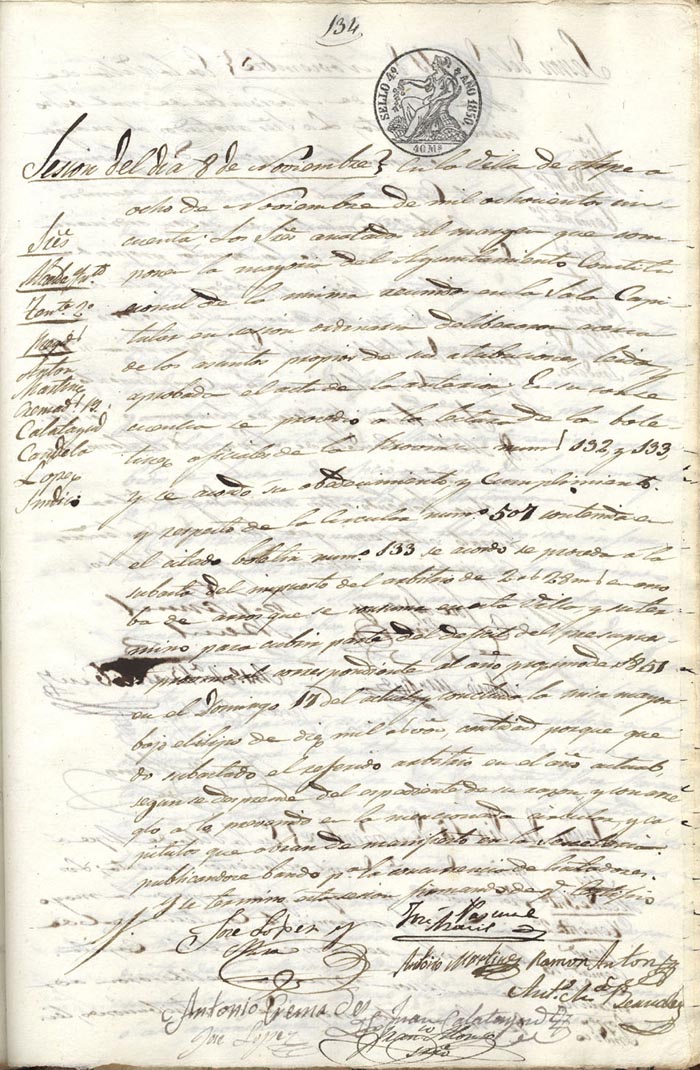 134
SELLO 4º AÑO 1850
40 Ms
Sesion del dia 8 de Noviembre En la Villa de Aspe a
ocho de Noviembre de mil ochocientos cin
cuenta: Los Sres anotados al margen que com
ponen la mayoria del Ayuntamiento Constitu
cional de la misma reunidos en la Sala Capi
tular en sesion ordinaria deliberaron acerca
de los asuntos propios de sus atribuciones, leida y
aprobada el acta de la anterior. En su conse
cuencia se procedio a la lectura de los bole
tines oficiales de la Provincia nums 132 y 133,
y se acordó su obedecimiento y cumplimiento.
y respecto de la Circular numo 507 contenida en
el citado boletin numo 133 se acordó se proceda a la
subasta del impuesto del arbitrio de 2 rs 28 ms en arro
ba de que se consuma en esta Villa y su ter
mino para cubrir parte del deficit del presupues
to correspondiente al año procsimo de 1851
en el Domingo 17 del actual
bajo el tipo de diez mil rs von, cantidad porque que
dó subastado el referido arbitrio en el año actual,
segun se desprende del espediente de su razon, y con arre
glo a lo prevenido en la mencionada circular y ca
pitulos que de manifiesto en la Secretaria
publicandose bando pa la concurrencia de licitadores.
Y se terminó esta sesion firmando de qe Certifico
Sres
Alcalde
Tente 2º
Regs
Anton
Martinez
Cremads
Calatayud
Candela
Lopez
Sindico
José Lopez
José Pascual
Antonio Martinez Ramon Anton
Antonio Cremades
Juan Calatayud
José Lopez